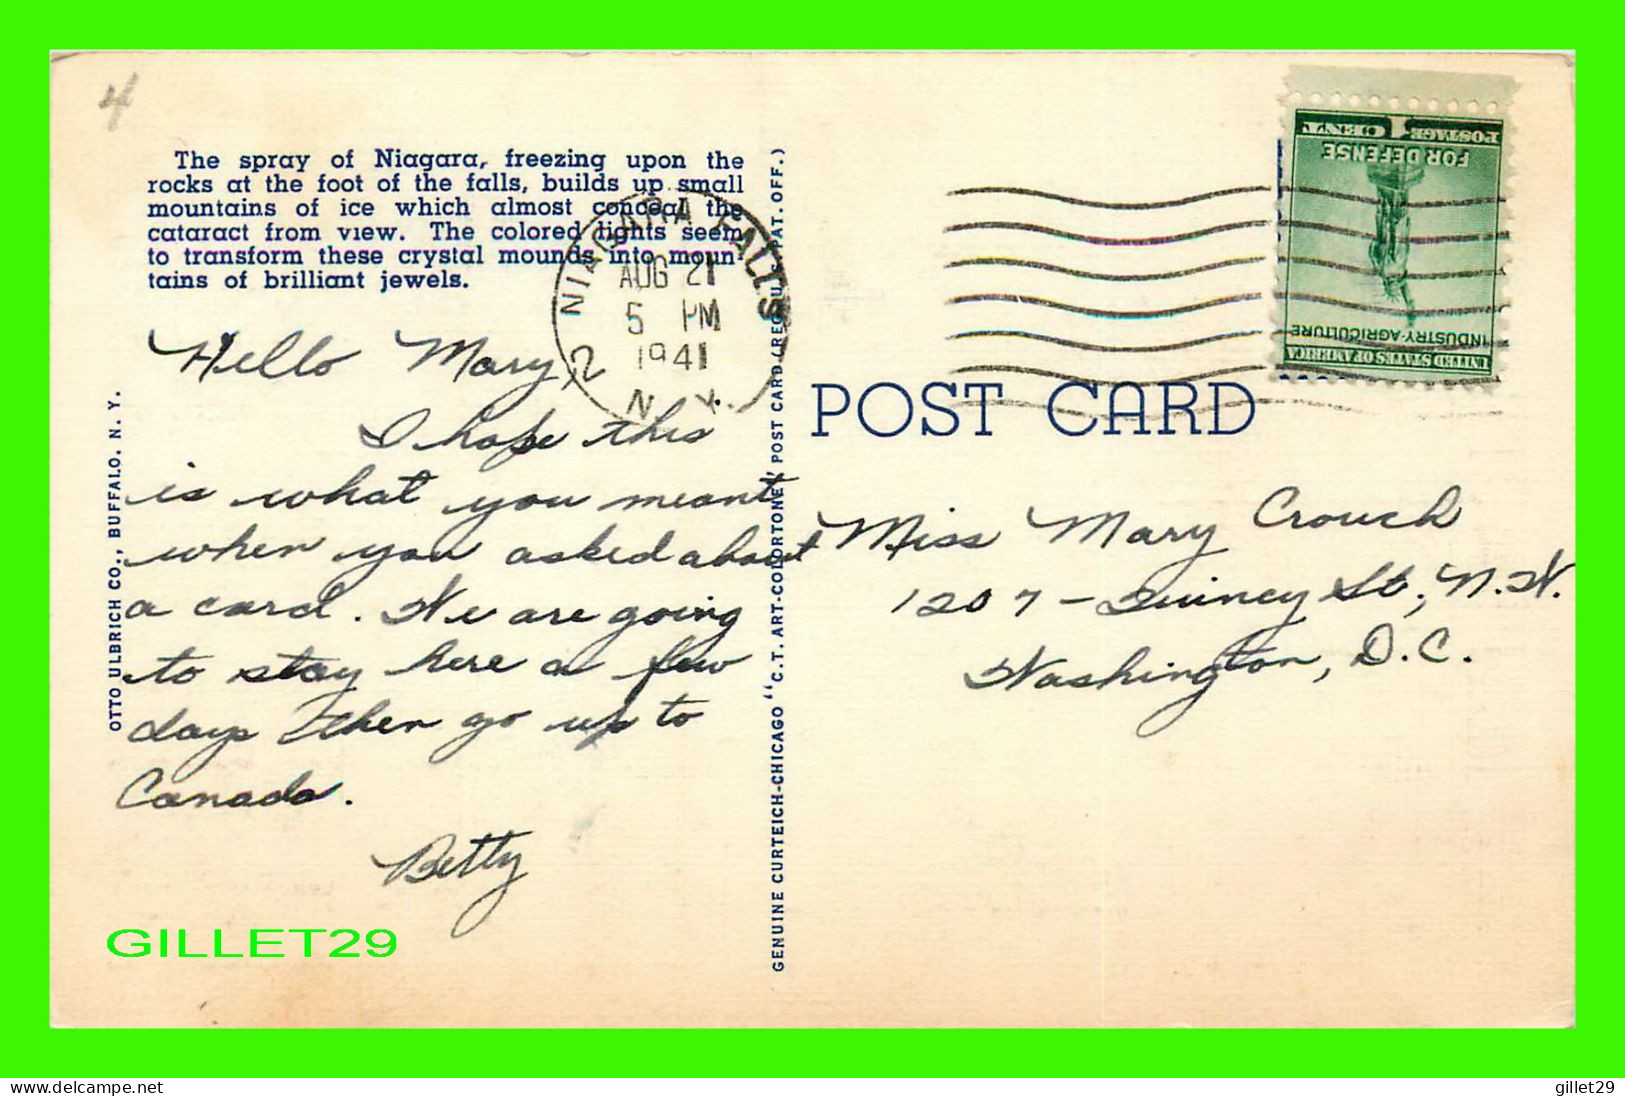 4
The spray of Niagara, freezing upon the
rocks at the foot of the falls, builds up small
mountains of ice which almost conceal the
cataract from view. The colored lights seem
to transform these crystal mounds into moun-
tains of brilliant jewels.
NIAGARA FALLS
2
AUG 21
5 PM
1941
N. Y.
Hello Mary,
I hope this
is what you meant
when you asked about
a card. We are going
to stay here a few
days then go up to
Canada.
Betty
OTTO ULBRICH CO., BUFFALO, N. Y.
GENUINE CURTEICH-CHICAGO "C.T. ART-COLORTONE" POST CARD (REG. U.S. PAT. OFF.)
POST CARD
UNITED STATES OF AMERICA
INDUSTRY-AGRICULTURE
FOR DEFENSE
POSTAGE 1 CENT
Miss Mary Crouch
1207 - Quincy St., N.W.
Washington, D.C.
GILLET29
© gillet29